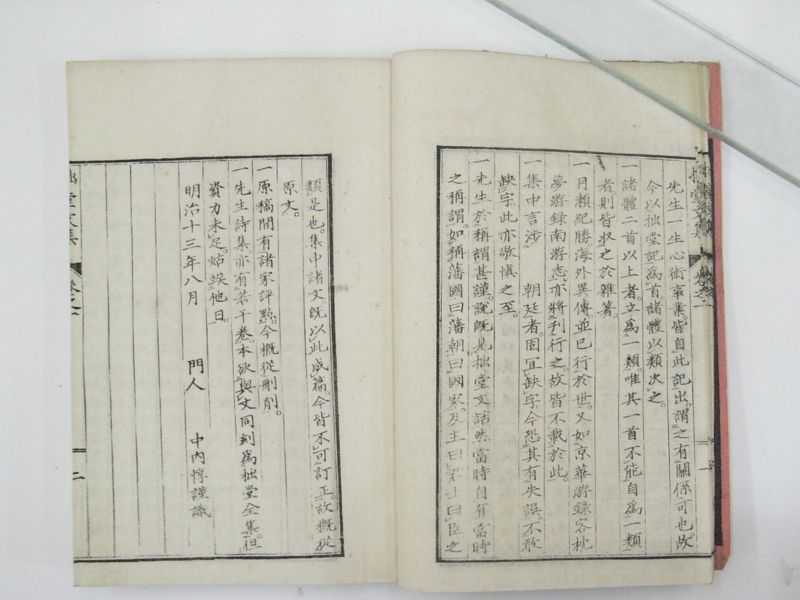 先生一生心術事業皆自此記出謂之有關係可也故
今以拙堂記爲首諸體以類次之
一諸體二首以上者立爲一類唯其一首不能自爲一類
者則皆收之於雜著
一月瀨紀勝海外異傳並已行於世又如京華游錄客枕
夢游錄南游志亦將刊行之故皆不載於此
一集中言涉 朝廷者固宜缺字今恐其有失誤不敢
缺字此亦敬愼之至
一先生於稱謂甚謹說既見拙堂文話然當時自有當時
之稱謂如稱藩國曰藩朝曰國家及主曰君上曰臣之
類是也集中諸文既以此成篇今皆不可訂正故概從
原文
一原稿間有諸家評點今概從刪削
一先生詩集亦有若干卷本欲與文同刻爲拙堂全集但
資力未足姑竢他日
明治十三年八月 門人 中內惇謹識
堂文集
二